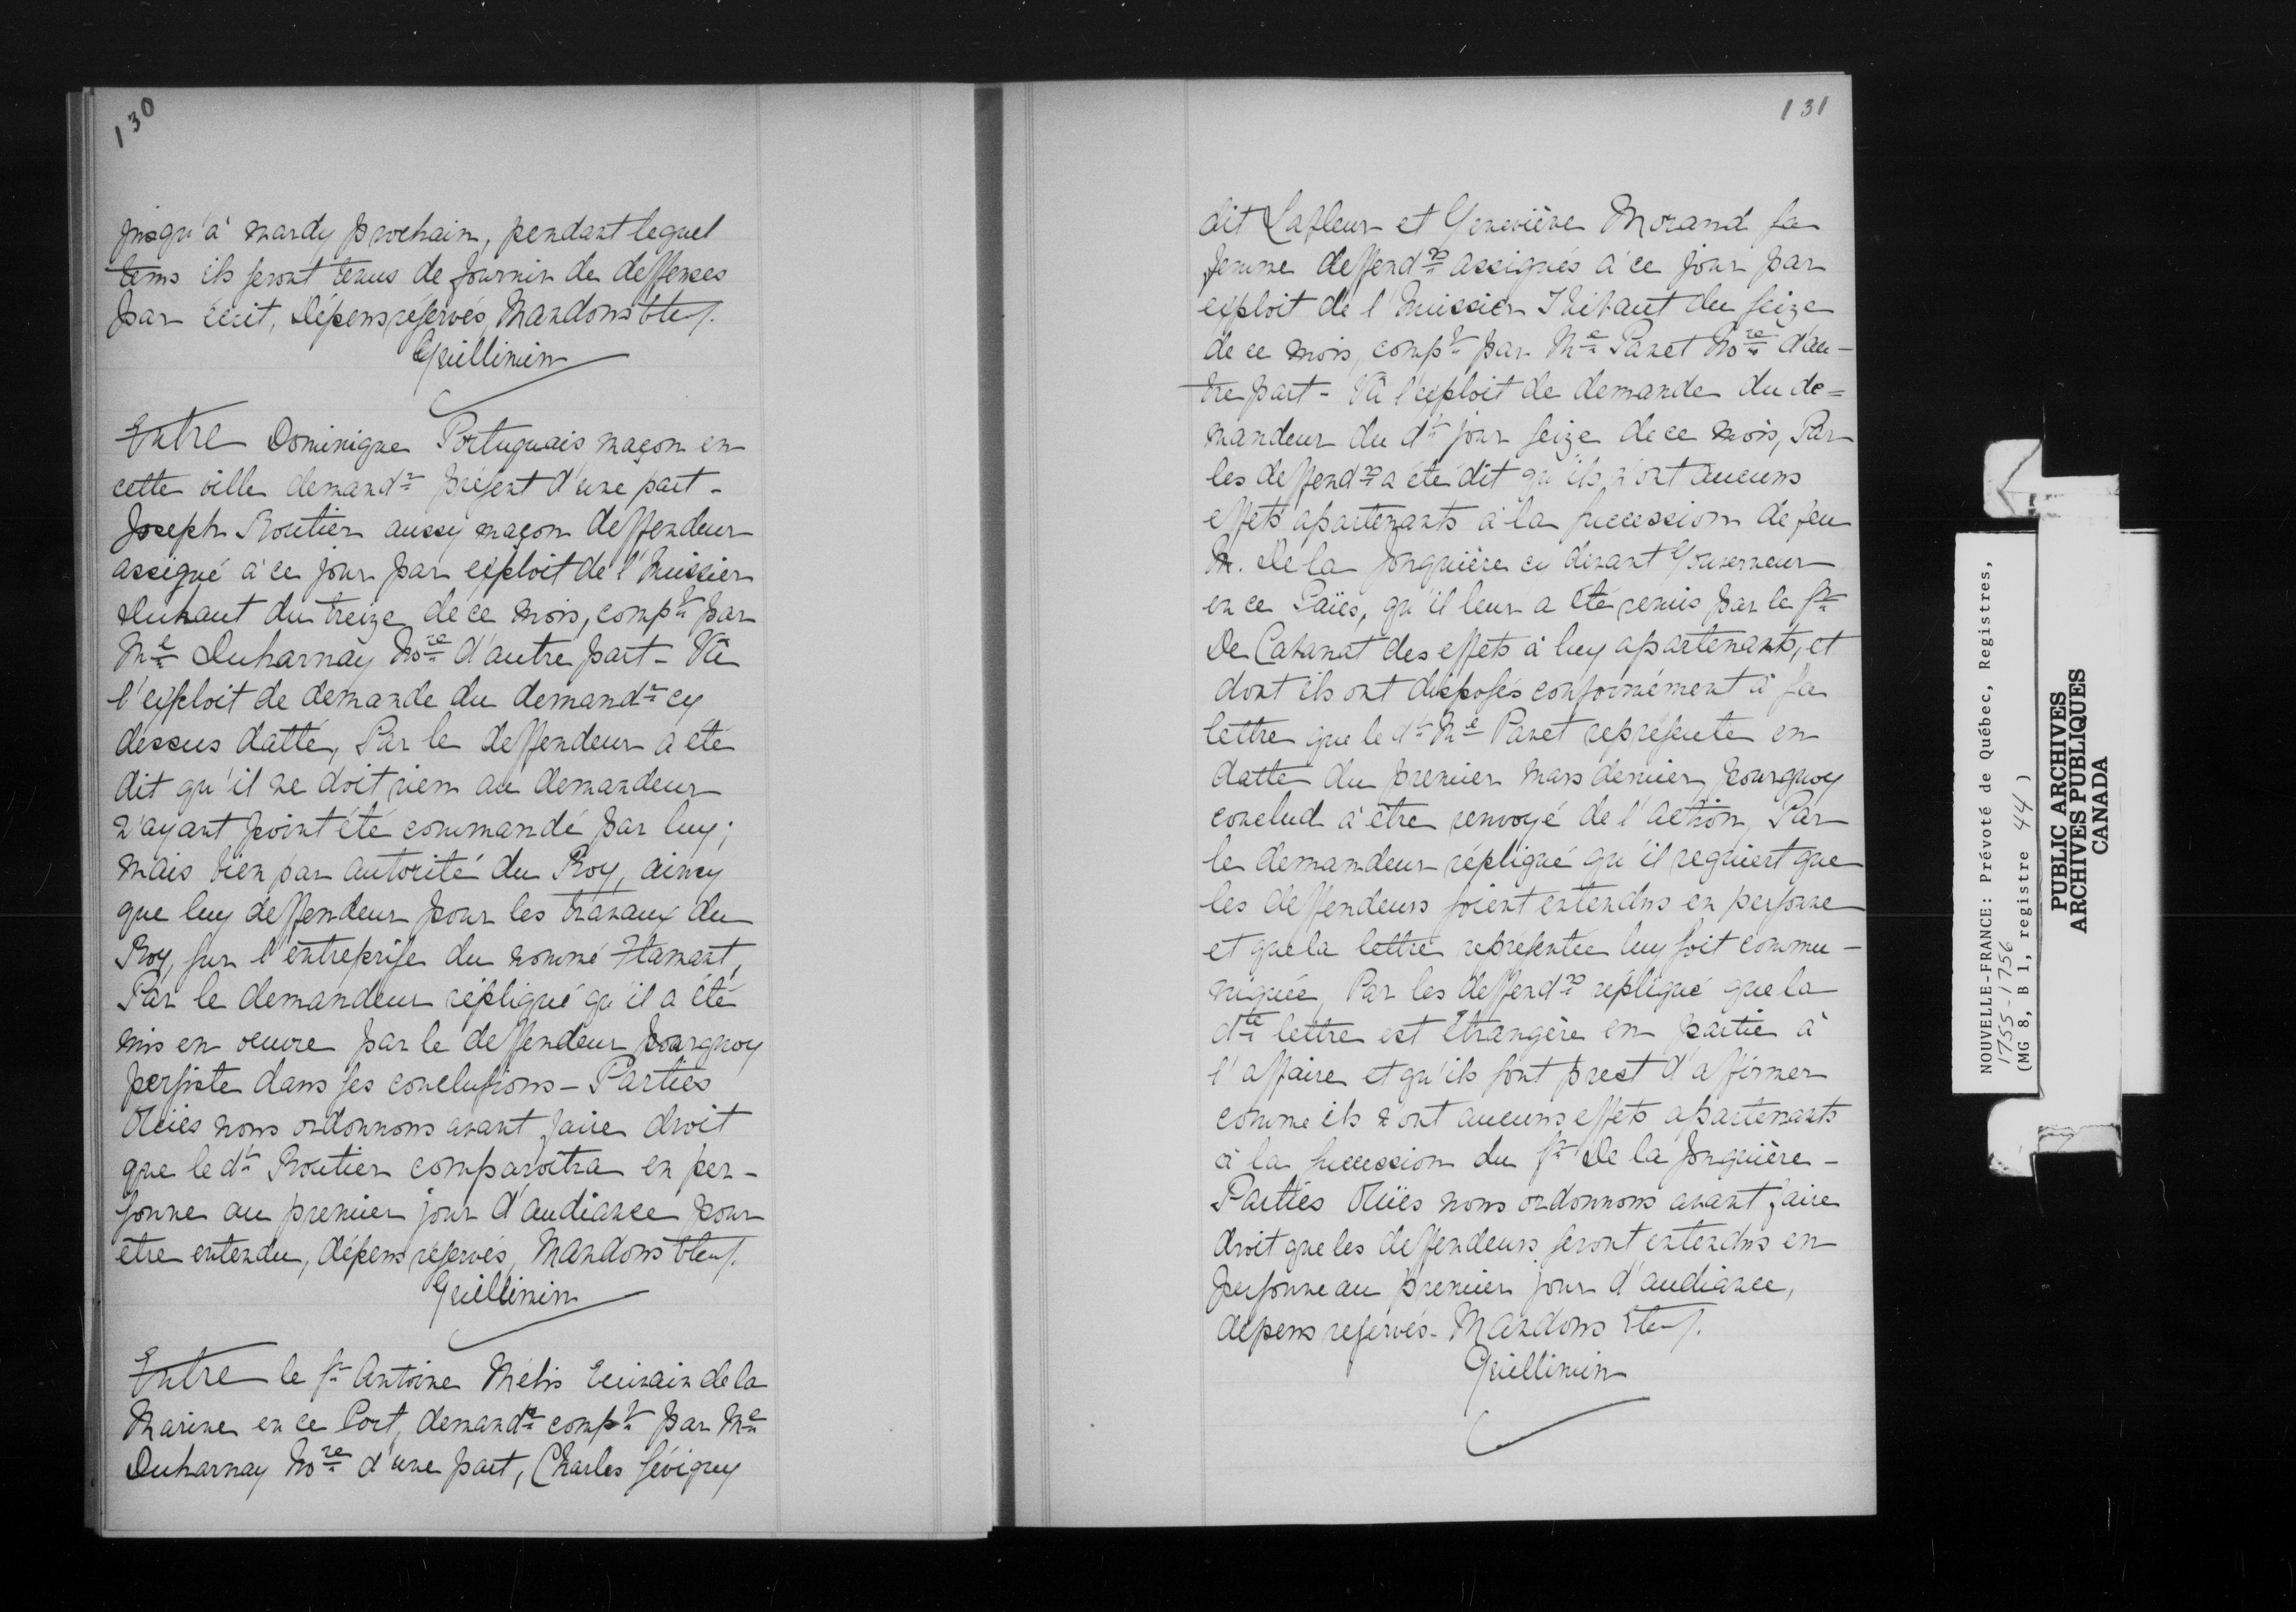 130
jusqu'à mardy prochain, pendant lequel
tems ils seront tenus de fournir de deffenses
par écrit, Dépens réservés, Mandons &tc/.
Guillimin
Entre Dominique Portuguais maçon en
cette ville demandr présent d'une part -
Joseph Routier aussy maçon deffendeur
assigné à ce jour par exploit de l'huissier
Duhaut du treize de ce mois, compt par
Me Duharnay Nore d'autre part - Vû
l'exploit de demande du demandr cy
dessus datté, Par le deffendeur a été
dit qu'il ne doit rien au demandeur
n'ayant point été commandé par luy;
mais bien par autorité du Roy, aincy
que luy deffendeur pour les travaux du
Roy, sur l'entreprise du nommé Flamant,
Par le demandeur répliqué qu'il a été
mis en oeuvre par le deffendeur pourquoy
persiste dans ses conclusions - Parties
Ouies nous ordonnons avant faire droit
que le dt Routier comparoîtra en per-
sonne au premier jour d'audiance pour
etre entendu, dépens réservés, Mandons &tc/.
Guillimin
Entre le Sr Antoine Mélis Ecrivain de la
Marine en ce Port, demandr compt par Me
Duharnay Nore d'une part, Charles Sévigny
131
dit Lafleur et Geneviève Morand sa
femme deffendrs assignés à ce jour par
exploit de l'huissier Thibaut du seize
de ce mois, compt par Me Panet Nore d'au-
tre part - Vû l'exploit de demande du de=
mandeur du dt jour seize de ce mois, Par
les deffendrs a été dit qu'ils n'ont aucuns
effets apartenants à la succession de feu
M. De la Jonquière cy devant Gouverneur
en ce Païes, qu'il leur a été remis par le Sr
De Cabanat des effets à luy apartenants, et
dont ils ont disposés conformément à sa
lettre que le dt Me Panet représente en
datte du premier mars dernier, pourquoy
conclud à être renvoyé de l'action, Par
le demandeur répliqué qu'il requiert que
les deffendeurs soient entendus en personne
et que la lettre représentée luy soit commu-
niquée, Par les deffendrs répliqué que la
dte lettre est étrangère en partie à
l'affaire et qu'ils sont prest d'affirmer
comme ils n'ont aucuns effets apartenants
à la succession du Sr De la Jonquière -
Parties Ouïes nous ordonnons avant faire
droit que les deffendeurs seront entendus en
personne au premier jour d'audiance,
dépens reservés - Mandons &tc/.
Guillimin
NOUVELLE-FRANCE: Prévoté de Québec, Registres,
1755-1756
(MG 8, B 1, registre 44)
PUBLIC ARCHIVES
ARCHIVES PUBLIQUES
CANADA